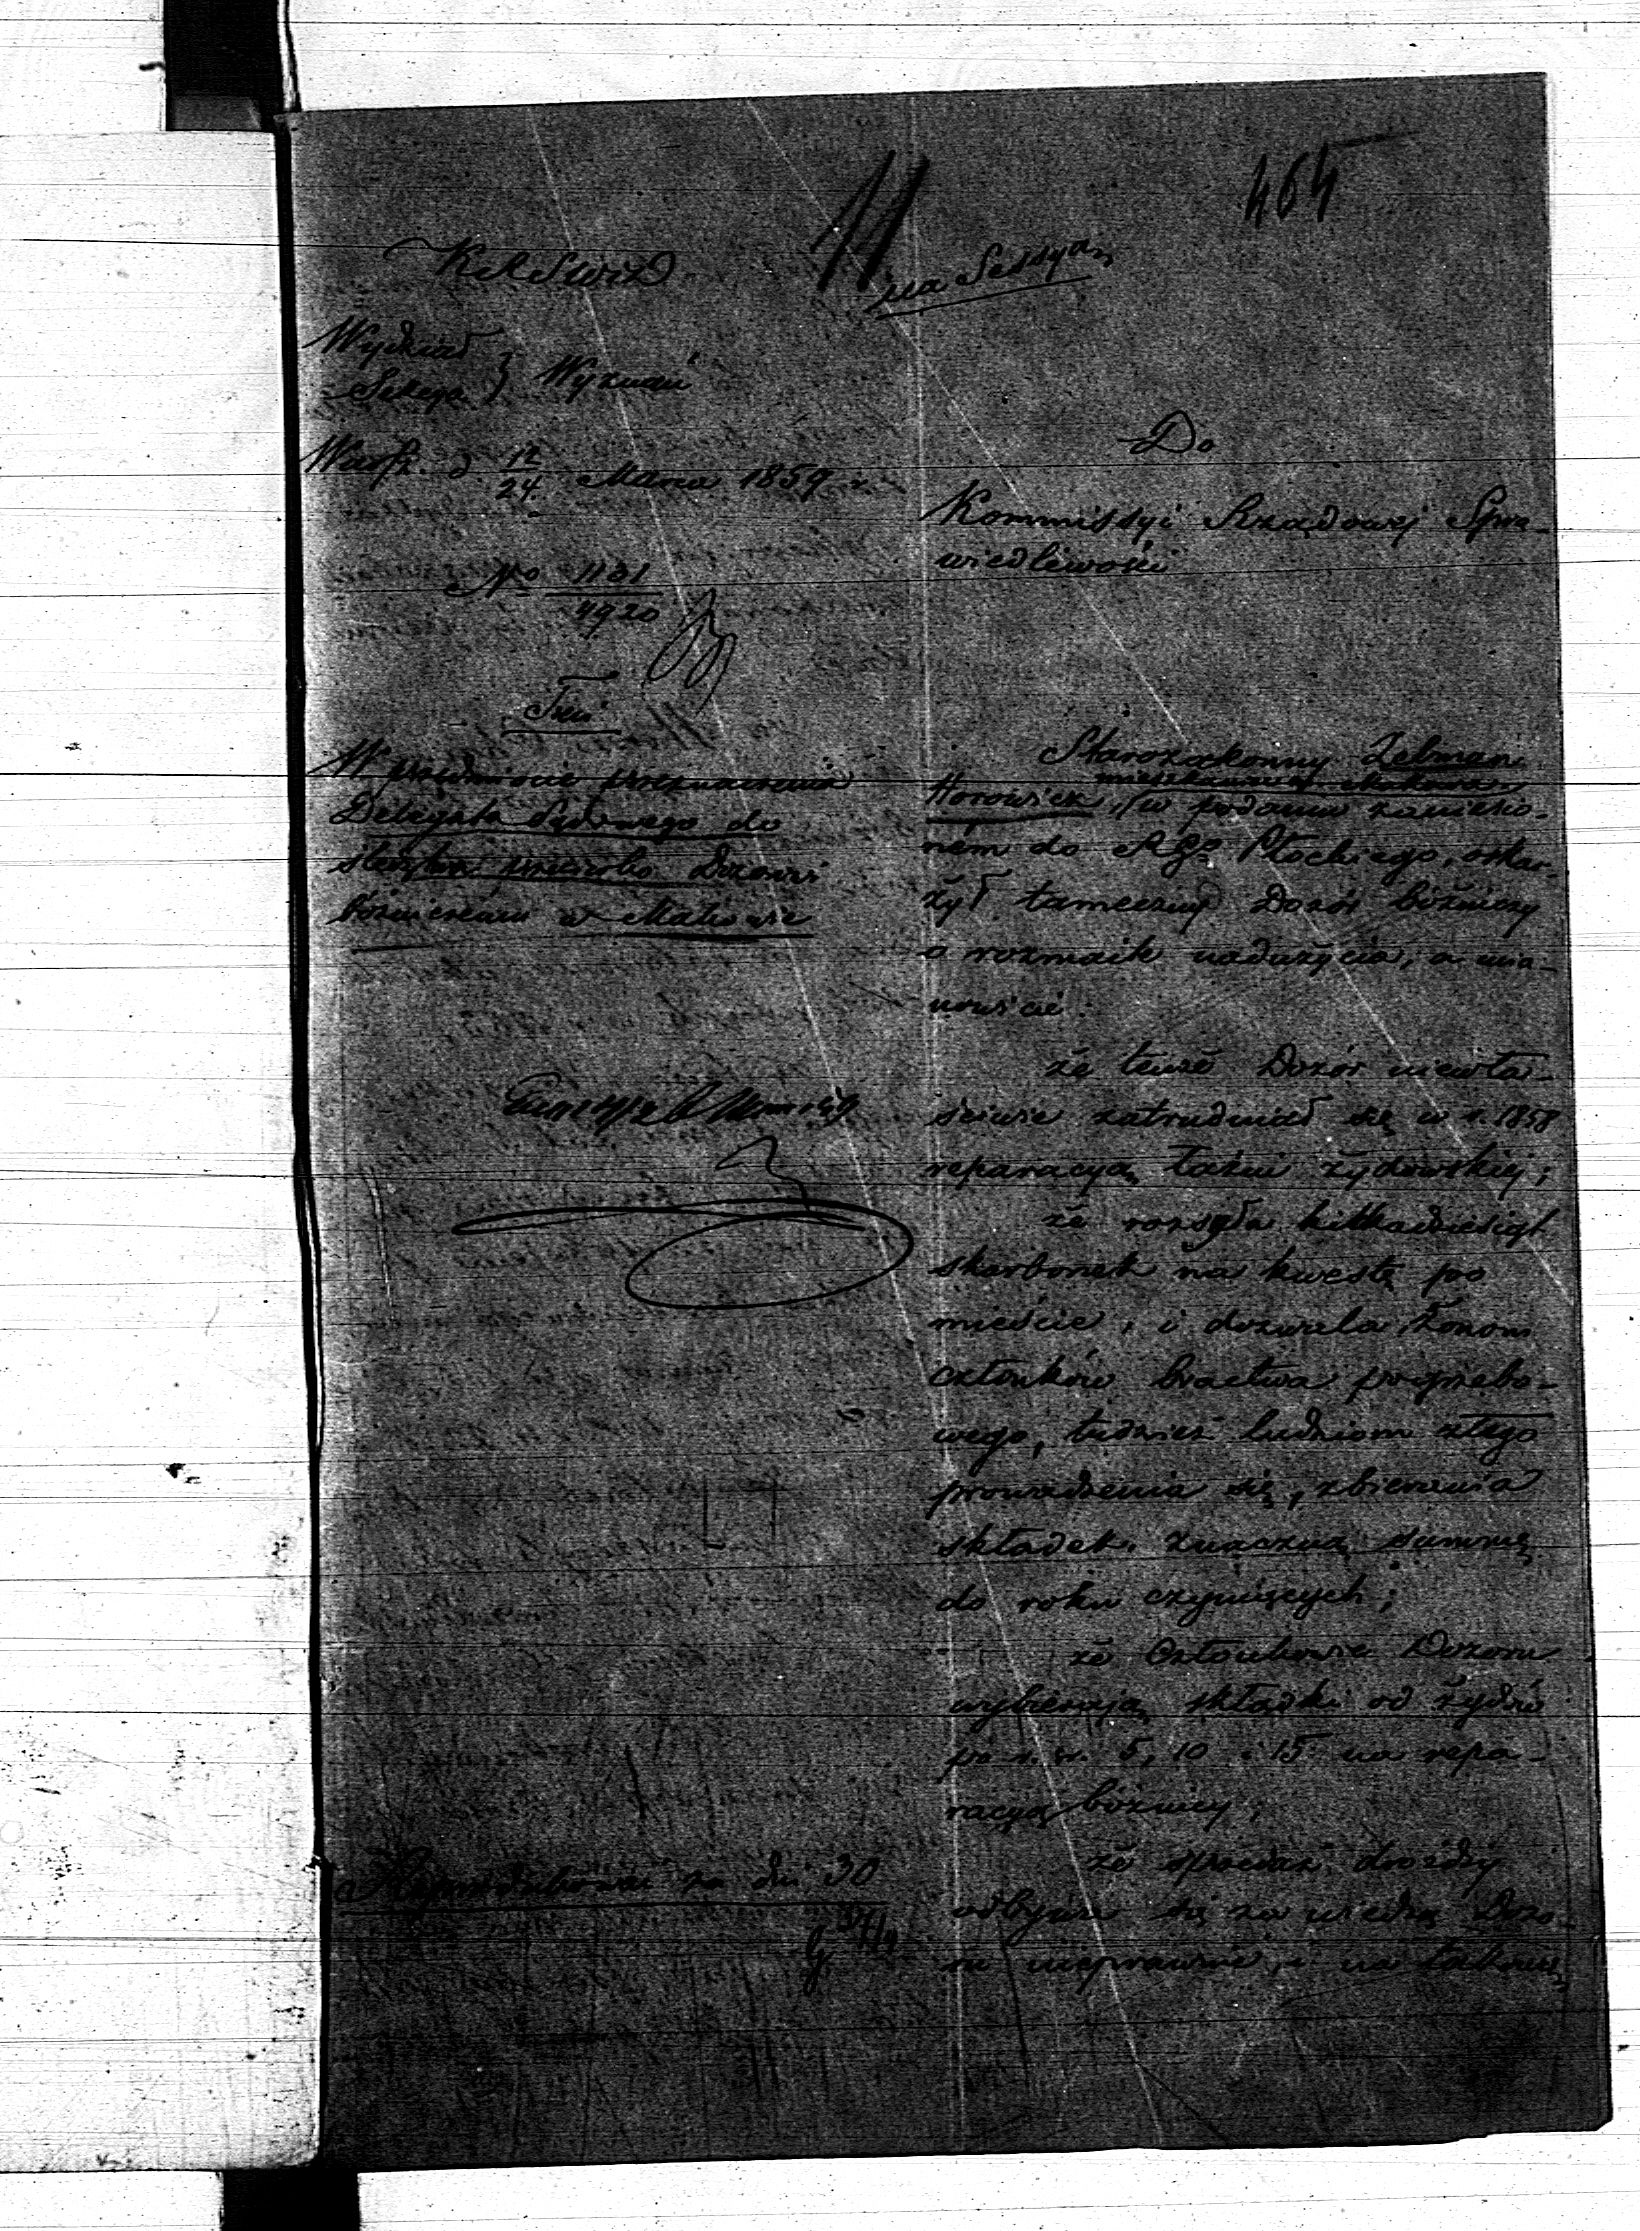 464
11
na Sessyą
K R S W i D
Wydział
Sekcya } Wyznań
Warsz. d. 12/24 Marca 1859 r.
No 1131/4920
Treść
W przedmiocie przeznaczenia
Delegata Sądowego do
śledztwa przeciwko Dozorowi
bóżniczemu w Makowie
Do
Kommissyi Rządowej Spra-
wiedliwości
Starozakonny Zelman
mieszkaniec m. Makowa
Horowicz, w podaniu zaniesio-
ném do R Go Płockiego, oskar-
żył tameczny Dozór bóżniczy
o rozmaite nadużycia, a mia-
nowicie:
że tenże Dozór niewła-
ściwie zatrudniał się w r. 1858
reparacyą łaźni żydowskiej;
że rozsyła kilkadziesiąt
skarbonek na kwestę po
mieście, i dozwala żonom
członków bractwa pogrzebo-
wego, tudzież ludziom złego
prowadzenia się, zbierania
składek znaczną summę
do roku czyniących;
że Członkowie Dozoru
wybierają składki od żydów
po r. sr. 5, 10 i 15 na repa-
racyą bóżnicy;
że sprzedaż drożdży
odbywa się za wiedzą Dozo-
ru nieprawnie, i na takową
za dni 30